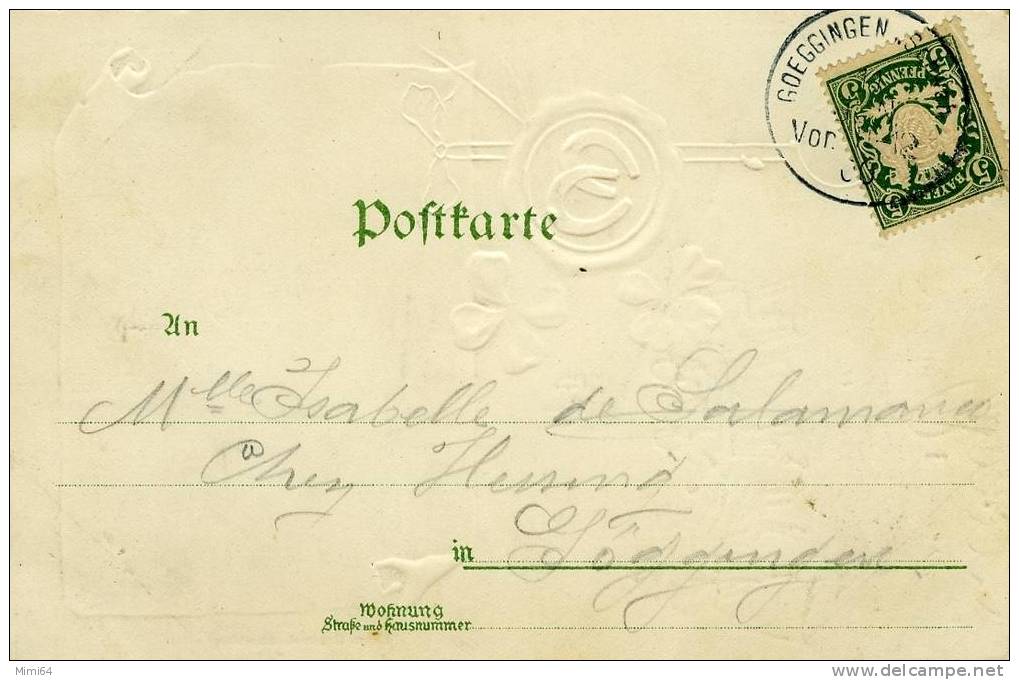 GOEGGINGEN
Vor.
5 5
PFENNIG
BAYERN
5 5
Postkarte
An
Mlle Isabelle de Salamanca
Chez Hessing
in Göggingen.
Wohnung
Straße und Hausnummer
Mimi64
www.delcampe.net